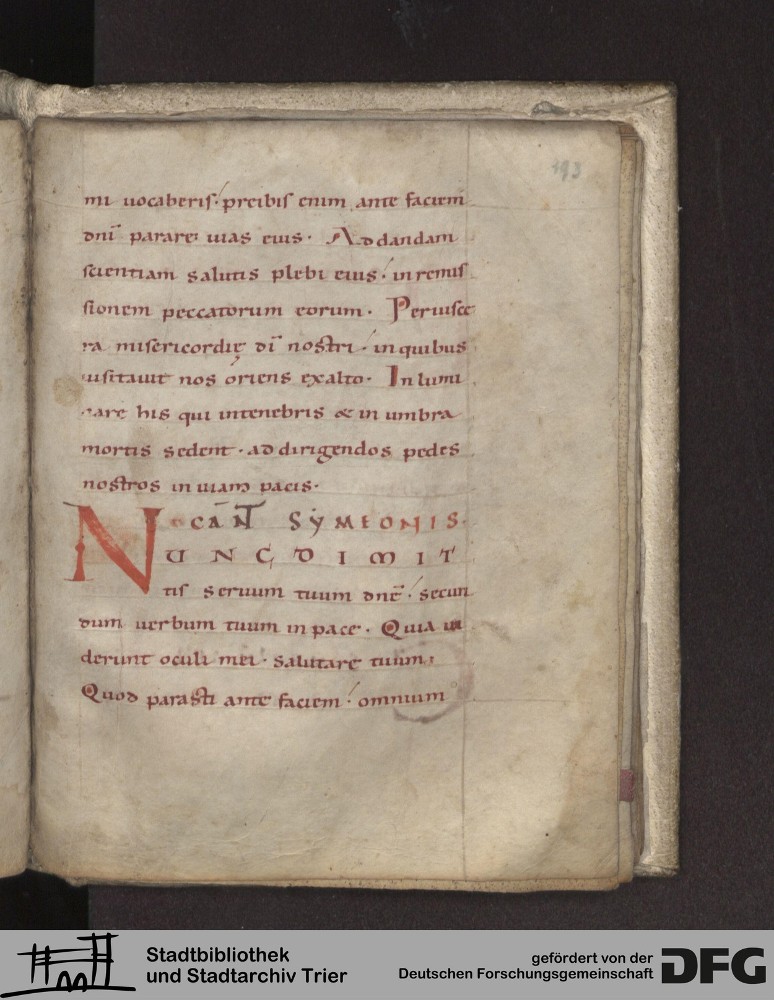 193
mi uocaberis· preibis enim ante faciem
dn̄i parare uias eius· Ad dandam
scientiam salutis plebi eius· in remis
sionem peccatorum eorum· Per uisce
ra misericordię dī nostri· in quibus
uisitauit nos oriens exalto· In lumi
nare his qui intenebris & in umbra
mortis sedent· ad dirigendos pedes
nostros in uiam pacis·
CAN̄T SYMEONIS·
NUNC DIMIT
tis seruum tuum dn̄e· secun
dum uerbum tuum in pace· Quia ui
derunt oculi mei· salutare tuum;
Quod parasti ante faciem· omnium
Stadtbibliothek
und Stadtarchiv Trier
gefördert von der
Deutschen Forschungsgemeinschaft
DFG